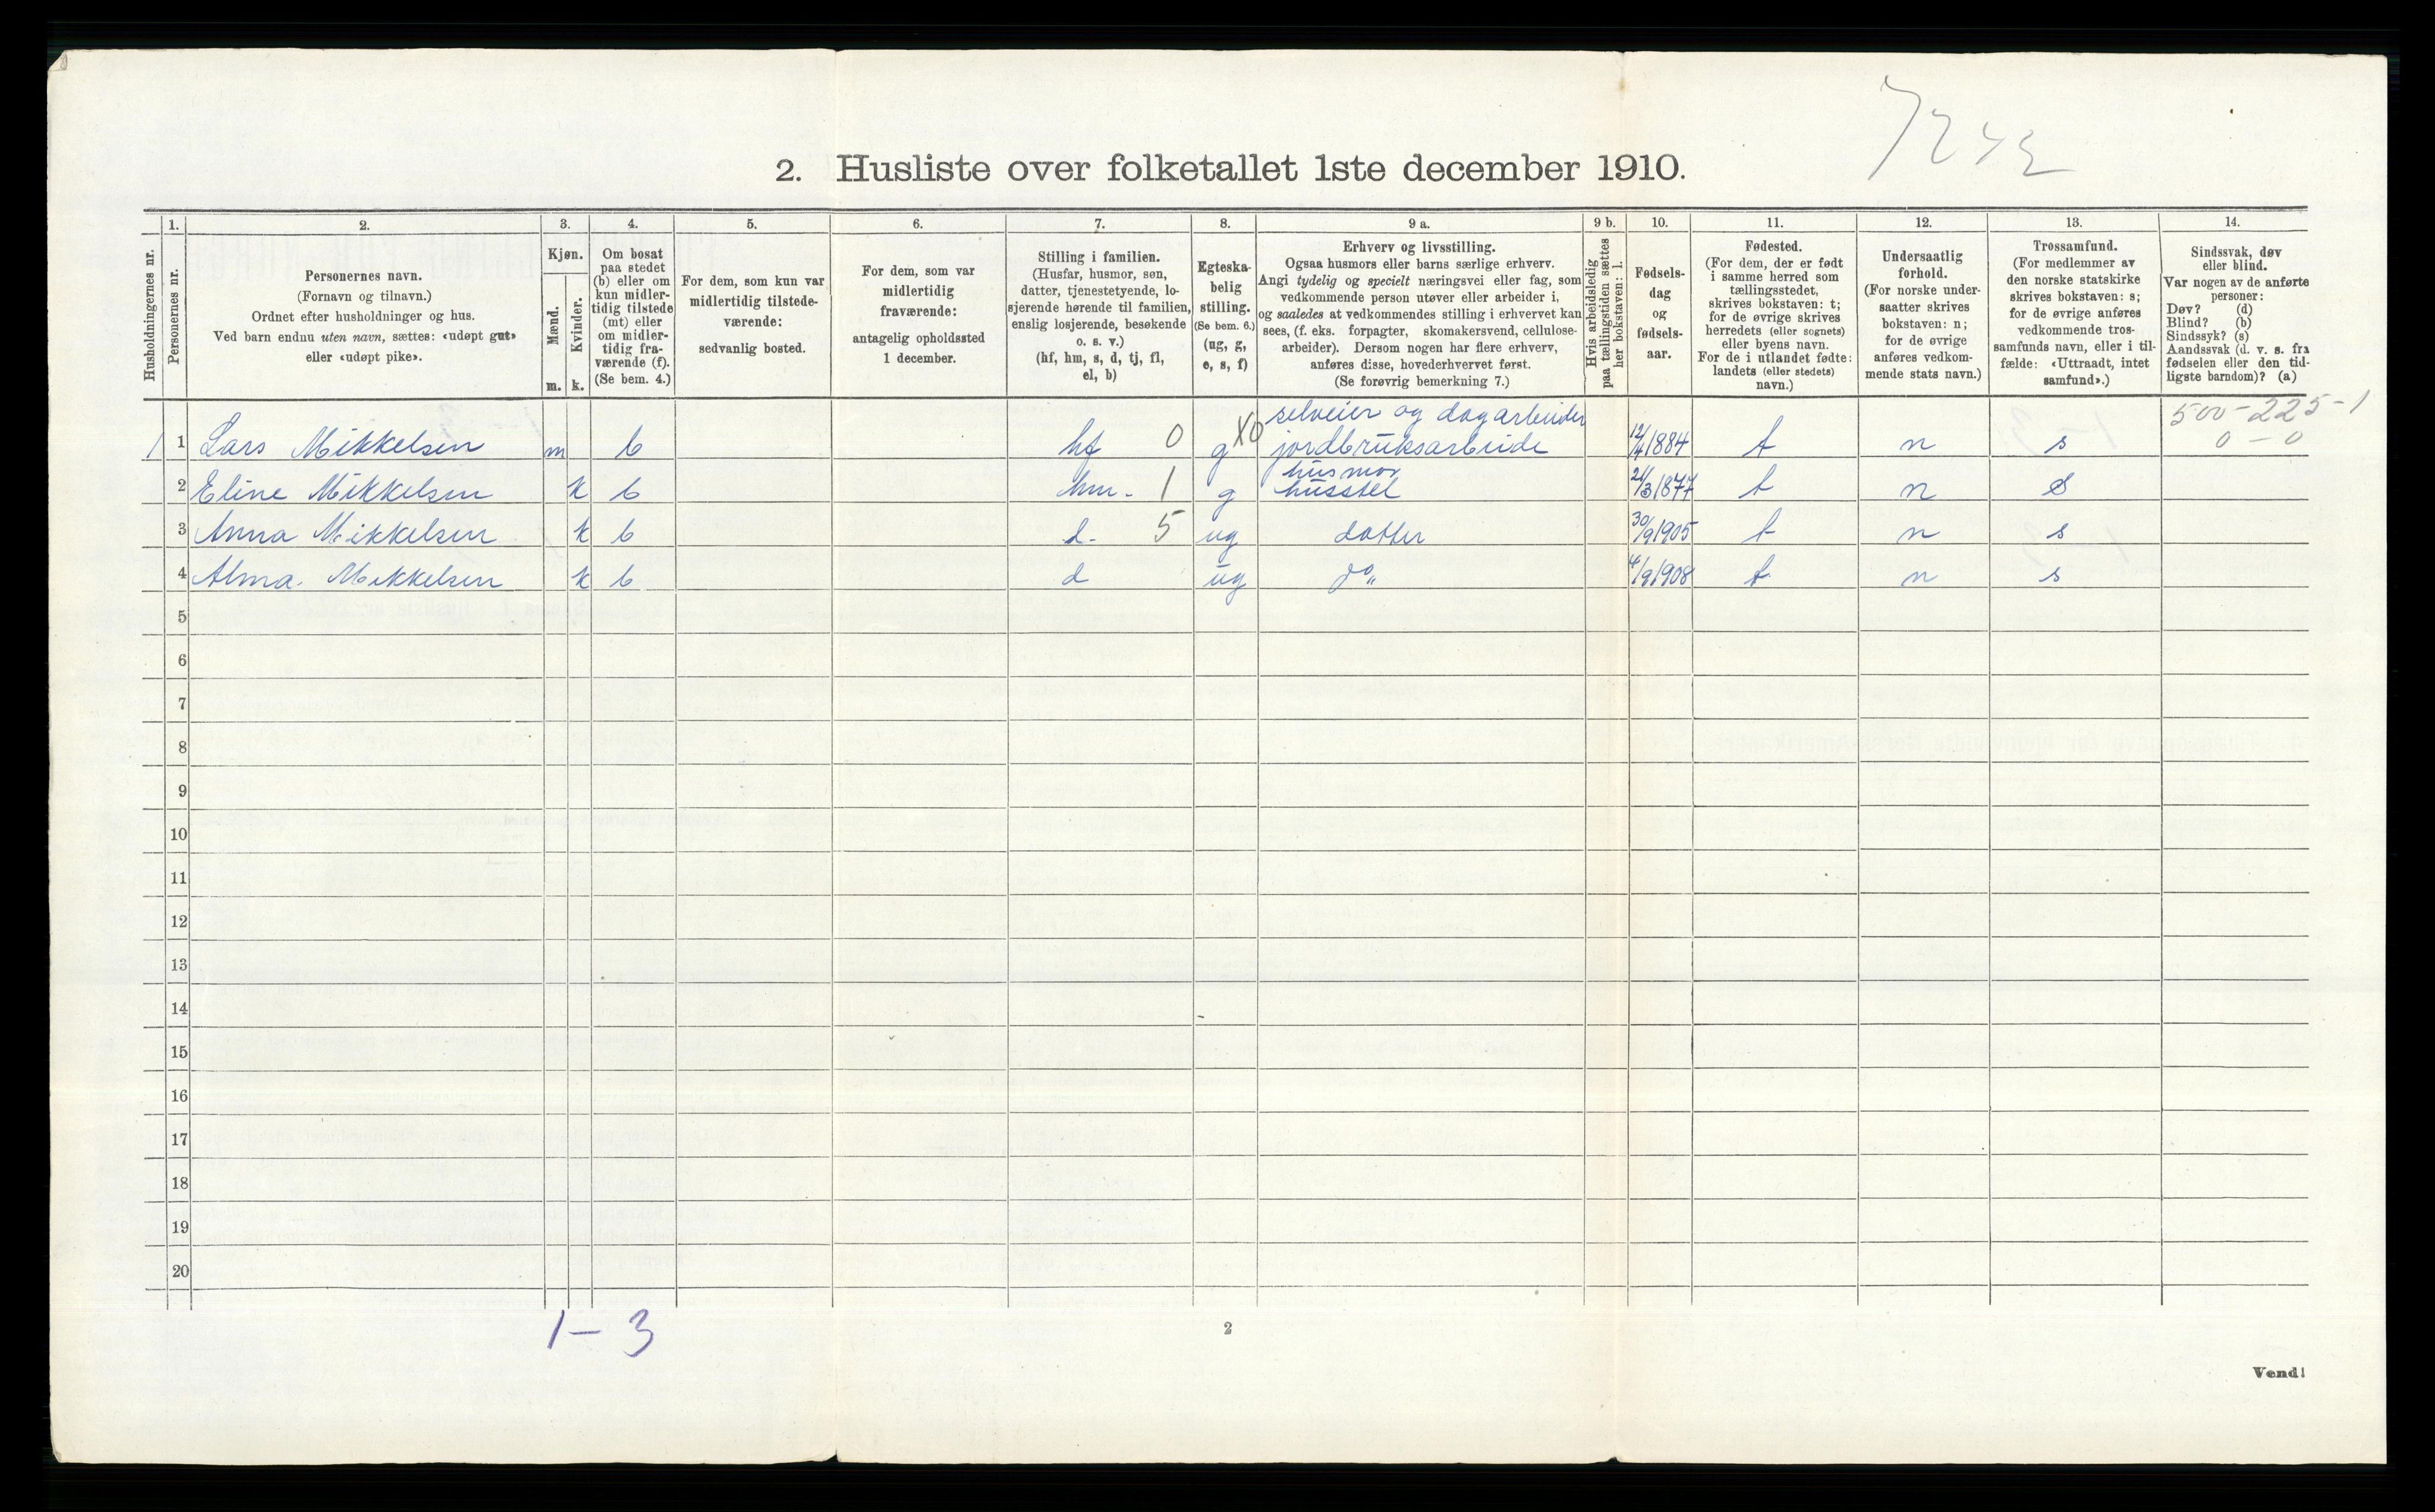 7242
2. Husliste over folketallet 1ste december 1910.
Husholdningernes nr.
1.
Personernes nr.
2.
Personernes navn.
(Fornavn og tilnavn.)
Ordnet efter husholdninger og hus.
Ved barn endnu uten navn, sættes: «udøpt gut»
eller «udøpt pike».
3.
Kjøn.
Mænd.
m.
Kvinder.
k.
4.
Om bosat
paa stedet
(b) eller om
kun midler-
tidig tilstede
(mt) eller
om midler-
tidig fra-
værende (f).
(Se bem. 4.)
5.
For dem, som kun var
midlertidig tilstede-
værende:
sedvanlig bosted.
6.
For dem, som var
midlertidig
fraværende:
antagelig opholdssted
1 december.
7.
Stilling i familien.
(Husfar, husmor, søn,
datter, tjenestetyende, lo-
sjerende hørende til familien,
enslig losjerende, besøkende
o. s. v.)
(hf, hm, s, d, tj, fl,
el, b)
8.
Egteska-
belig
stilling.
(Se bem. 6.)
(ug, g,
e, s, f)
9 a.
Erhverv og livsstilling.
Ogsaa husmors eller barns særlige erhverv.
Angi tydelig og specielt næringsvei eller fag, som
vedkommende person utøver eller arbeider i,
og saaledes at vedkommendes stilling i erhvervet kan
sees, (f. eks. forpagter, skomakersvend, cellulose-
arbeider). Dersom nogen har flere erhverv,
anføres disse, hovederhvervet først.
(Se forøvrig bemerkning 7.)
9 b.
Hvis arbeidsledig
paa tællingstiden sættes
her bokstaven: l.
10.
Fødsels-
dag
og
fødsels-
aar.
11.
Fødested.
(For dem, der er født
i samme herred som
tællingsstedet,
skrives bokstaven: t;
for de øvrige skrives
herredets (eller sognets)
eller byens navn.
For de i utlandet fødte:
landets (eller stedets)
navn.)
12.
Undersaatlig
forhold.
(For norske under-
saatter skrives
bokstaven: n;
for de øvrige
anføres vedkom-
mende stats navn.)
13.
Trossamfund.
(For medlemmer av
den norske statskirke
skrives bokstaven: s;
for de øvrige anføres
vedkommende tros-
samfunds navn, eller i til-
fælde: «Uttraadt, intet
samfund».)
14.
Sindssvak, døv
eller blind.
Var nogen av de anførte
personer:
Døv? (d)
Blind? (b)
Sindssyk? (s)
Aandssvak (d. v. s. fra
fødselen eller den tid-
ligste barndom)? (a)
selveier og dagarbeider 500-225-1
1 1 Lars Mikkelsen m b hf 0 g X0 jordbruksarbeide 12/4 1884 t n s 0-0
husmor
2 Eline Mikkelsen k b hm. 1 g husstel 21/3 1877 t n s
3 Anna Mikkelsen k b d. 5 ug datter 30/9 1905 t n s
4 Alma Mikkelsen k b d ug do„ 4/9 1908 t n s
5
6
7
8
9
10
11
12
13
14
15
16
17
18
19
20
1-3
2
Vend!